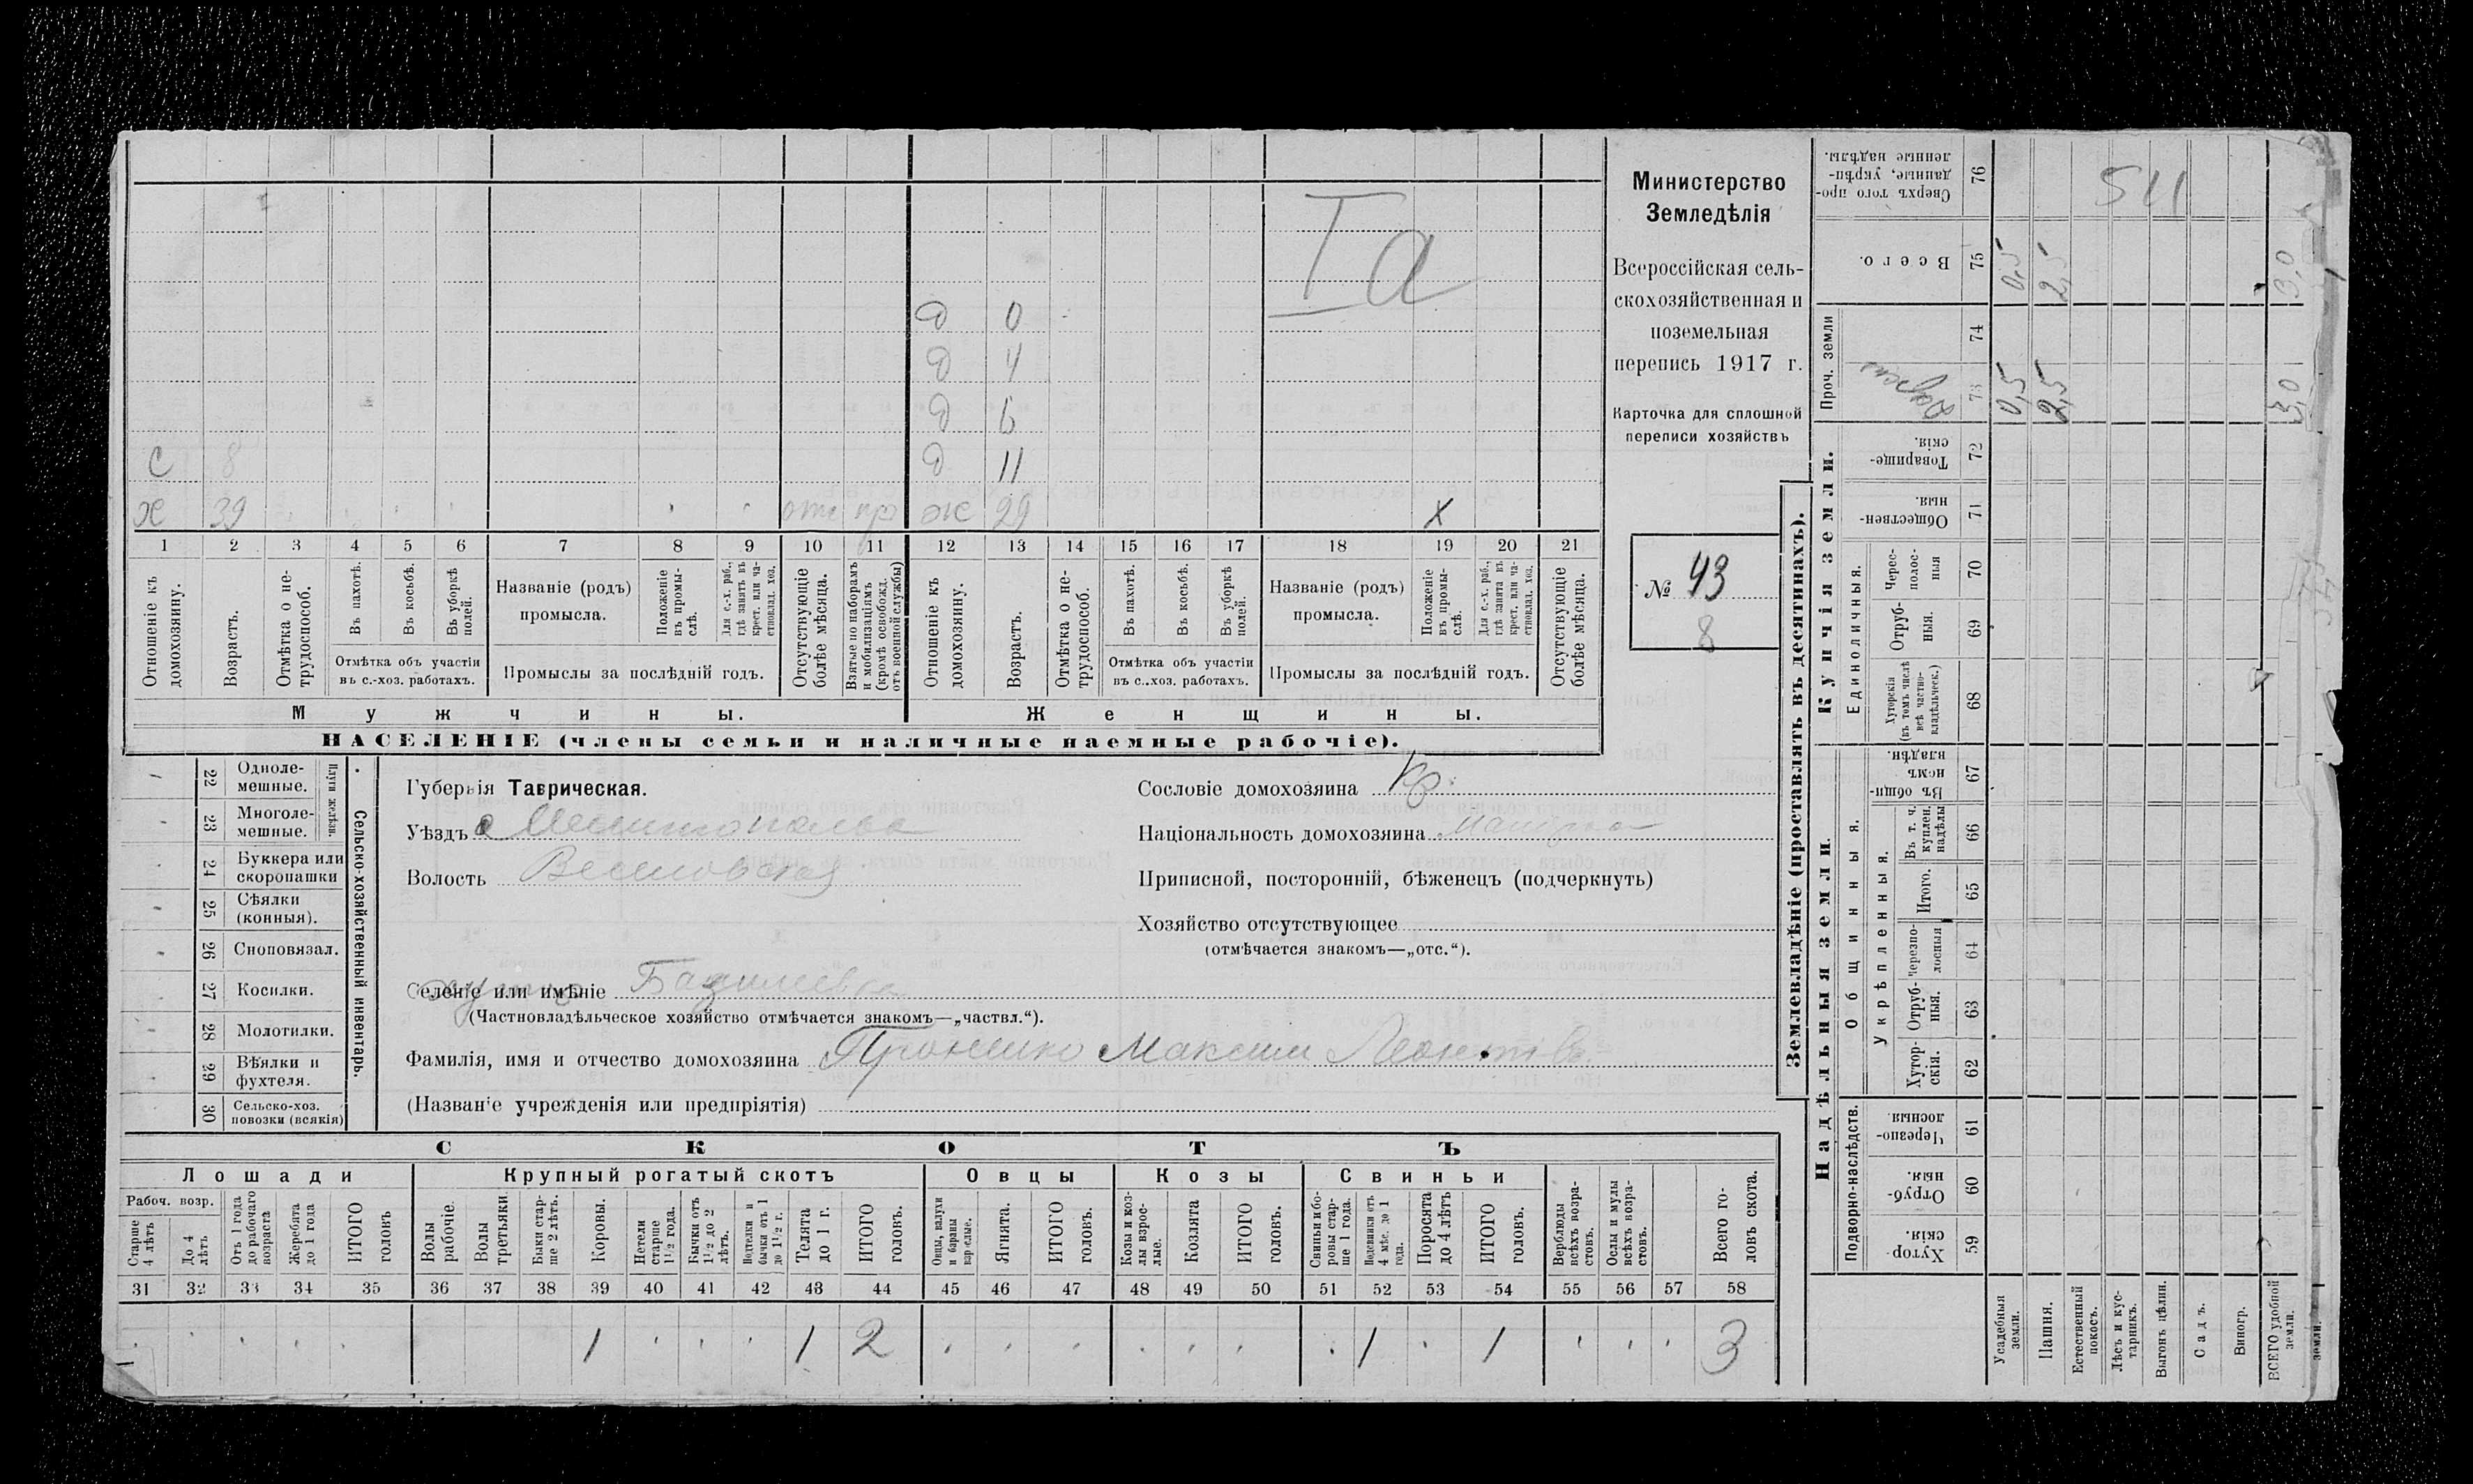 Министерство
Земледѣлія
Всероссійская сель-
скохозяйственная и
поземельная
перепись 1917 г.
Карточка для сплошной
переписи хозяйствъ
№ 43
8
Iа
д 0
д 4
д 6
д 11
с 8
х 39 отс пр ж 29 х
1 2 3 4 5 6 7 8 9 10 11 12 13 14 15 16 17 18 19 20 21
Отношеніе къ домохозяину.
Возрастъ.
Отмѣтка о не-трудоспособ.
Въ пахотѣ.
Въ косьбѣ.
Въ уборкѣ полей.
Отмѣтка объ участіи
въ с.-хоз. работахъ.
Названіе (родъ)
промысла.
Положеніе въ промы-слѣ.
Для с.-х. раб., гдѣ занятъ въ крест. или ча-стновлад. хоз.
Промыслы за послѣдній годъ.
Отсутствующіе болѣе мѣсяца.
Взятые по наборамъ и мобилизаціямъ (кромѣ освобожд. отъ военной службы)
Отношеніе къ домохозяину.
Возрастъ.
Отмѣтка о не-трудоспособ.
Въ пахотѣ.
Въ косьбѣ.
Въ уборкѣ полей.
Отмѣтка объ участіи
въ с..хоз. работахъ.
Названіе (родъ)
промысла.
Положеніе въ промы-слѣ.
Для с.-х. раб., гдѣ занята въ крест. или ча-стновлад. хоз.
Промыслы за послѣдній годъ.
Отсутствующіе болѣе мѣсяца.
Мужчины. Женщины.
НАСЕЛЕНІЕ (члены семьи и наличные наемные рабочіе).
Сельско-хозяйственный инвентарь.
Плуги желѣзн.
22 Одноле-мешные.
23 Многоле-мешные.
24 Буккера или скоропашки
25 Сѣялки (конныя).
26 Сноповязал.
27 Косилки.
28 Молотилки.
29 Вѣялки и фухтеля.
30 Сельско-хоз. повозки (всякія)
Губернія Таврическая.
Уѣздъ Мелитопольс
Волость Веселовская
Сословіе домохозяина Кр.
Національность домохозяина
Приписной, посторонній, бѣженецъ (подчеркнуть)
Хозяйство отсутствующее
(отмѣчается знакомъ—„отс.“).
Селеніе или имѣніе хуторъ Базилевка
(Частновладѣльческое хозяйство отмѣчается знакомъ—„частвл.“).
Фамилія, имя и отчество домохозяина Максим Леонтів.
(Названіе учрежденія или предпріятія)
СКОТЪ
Лошади Крупный рогатый скотъ Овцы Козы Свиньи
Рабоч. возр.
Старше 4 лѣтъ
До 4 лѣтъ
Отъ 1 года до рабочаго возраста
Жеребята до 1 года
ИТОГО головъ
Волы рабочіе.
Волы третьяки
Быки стар-ше 2 лѣтъ.
Коровы.
Нетели старше 1½ года.
Бычки отъ 1½ до 2 лѣтъ.
Подтелки и бычки отъ 1 до 1½ г.
Телята до 1 г.
ИТОГО головъ.
Овцы, валухи и бараны взрослые.
Ягнята.
ИТОГО головъ.
Козы и коз-лы взрос-лые.
Козлята
ИТОГО головъ.
Свиньи и бо-ровы стар-ше 1 года.
Подсвинки отъ 4 мѣс. до 1 года.
Поросята до 4 лѣтъ
ИТОГО головъ.
Верблюды всѣхъ возра-стовъ.
Ослы и мулы всѣхъ возра-стовъ.
Всего го-ловъ скота.
31 32 33 34 35 36 37 38 39 40 41 42 43 44 45 46 47 48 49 50 51 52 53 54 55 56 57 58
1 1 2 1 1 3
Землевладѣніе (проставлять въ десятинахъ).
Надѣльныя земли. Купчія земли. Проч. земли
Подворно-наслѣдств.
Общинныя.
Укрѣпленныя.
Единоличныя.
59 Хутор-скія.
60 Отруб-ныя.
61 Черезпо-лосныя
62 Хутор-скія.
63 Отруб-ныя.
64 черезпо-лосныя
65 Итого.
66 Въ т. ч. куплен. надѣлы
67 Въ общин-номъ владѣн.
68 Хуторскія (въ томъ числѣ всѣ частно-владѣльческ.)
69 Отруб-ныя.
70 Черес-полос-ныя
71 Обществен-ныя.
72 Товарище-скія.
73
74
75 Всего.
76 Сверхъ того про-данные, укрѣп-ленные надѣлы.
Усадебныя земли. 0,5 0,5
Пашня. 2,5 2,5
Естественный покосъ.
Лѣсъ и кус-тарникъ.
Выгонъ цѣлин.
Садъ.
Виногр.
ВСЕГО удобной земли. 3,0 3,0
земли.
511